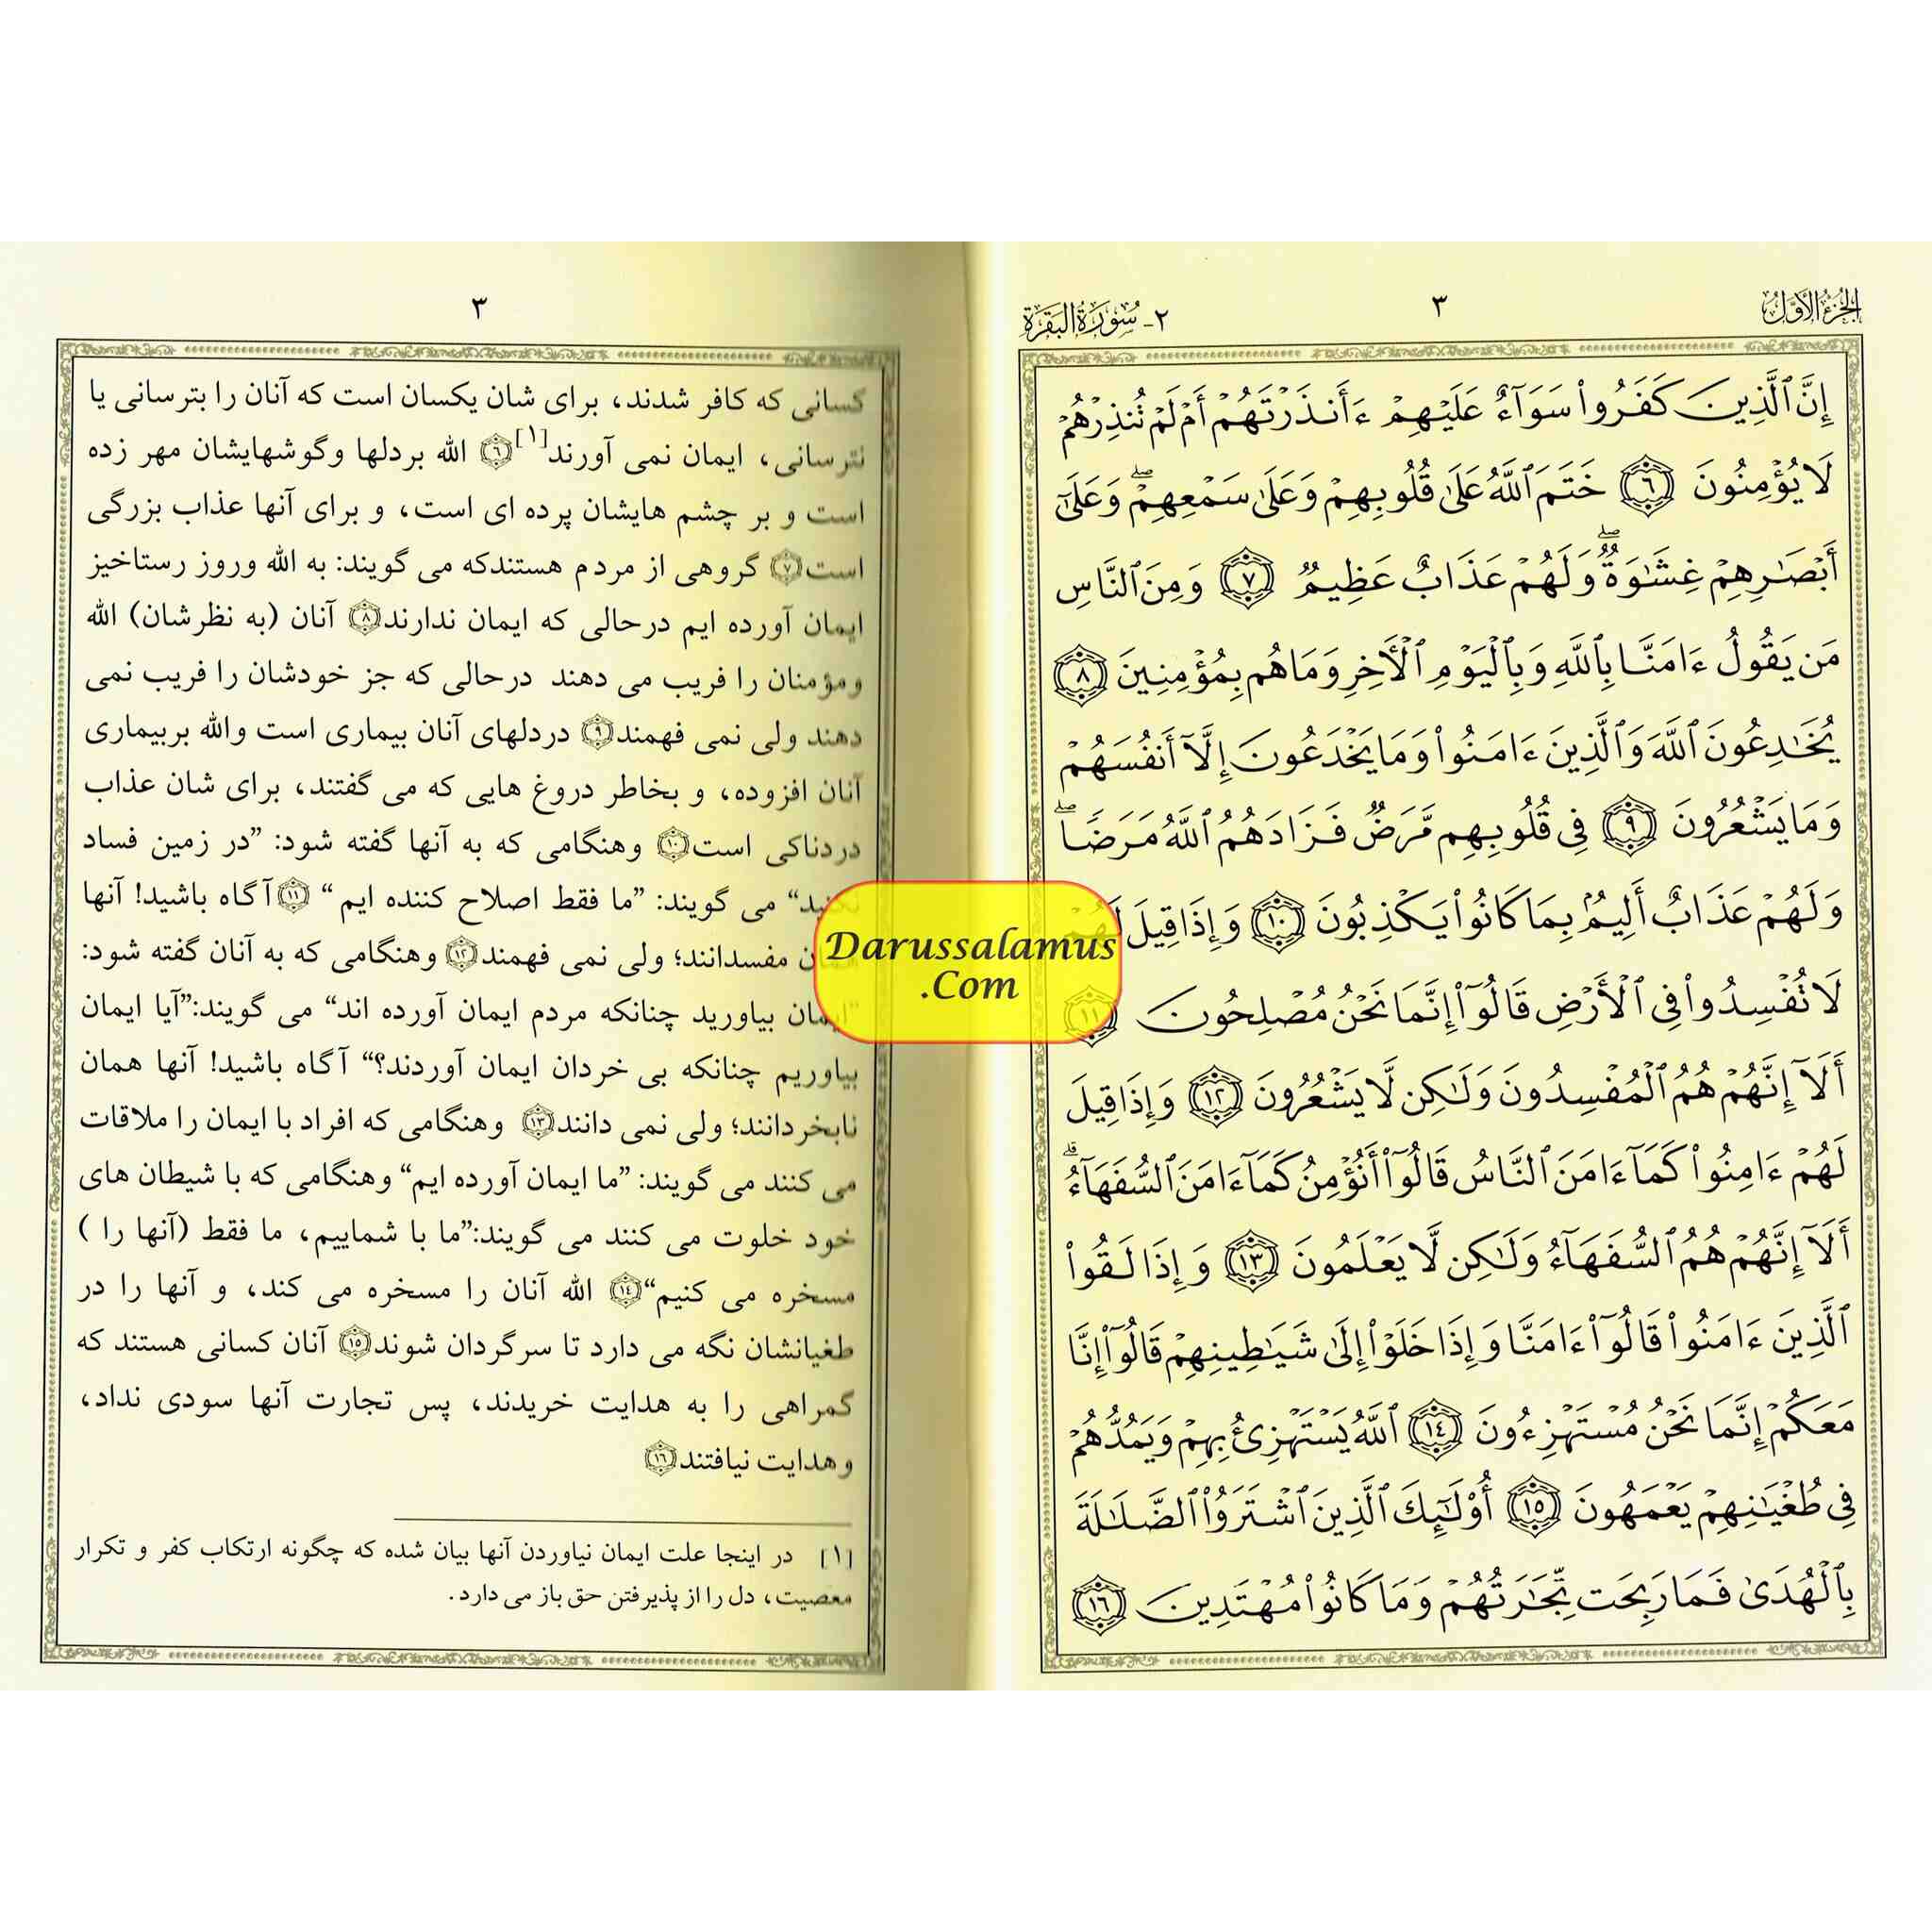 الجزء الأول
٣
٢- سورة البقرة
إِنَّ ٱلَّذِينَ كَفَرُوا۟ سَوَآءٌ عَلَيْهِمْ ءَأَنذَرْتَهُمْ أَمْ لَمْ تُنذِرْهُمْ
لَا يُؤْمِنُونَ ٦ خَتَمَ ٱللَّهُ عَلَىٰ قُلُوبِهِمْ وَعَلَىٰ سَمْعِهِمْ ۖ وَعَلَىٰٓ
أَبْصَـٰرِهِمْ غِشَـٰوَةٌ ۖ وَلَهُمْ عَذَابٌ عَظِيمٌ ٧ وَمِنَ ٱلنَّاسِ
مَن يَقُولُ ءَامَنَّا بِٱللَّهِ وَبِٱلْيَوْمِ ٱلْـَٔاخِرِ وَمَا هُم بِمُؤْمِنِينَ ٨
يُخَـٰدِعُونَ ٱللَّهَ وَٱلَّذِينَ ءَامَنُوا۟ وَمَا يَخْدَعُونَ إِلَّآ أَنفُسَهُمْ
وَمَا يَشْعُرُونَ ٩ فِى قُلُوبِهِم مَّرَضٌ فَزَادَهُمُ ٱللَّهُ مَرَضًا ۖ
وَلَهُمْ عَذَابٌ أَلِيمٌۢ بِمَا كَانُوا۟ يَكْذِبُونَ ١٠ وَإِذَا قِيلَ لَهُمْ
لَا تُفْسِدُوا۟ فِى ٱلْأَرْضِ قَالُوٓا۟ إِنَّمَا نَحْنُ مُصْلِحُونَ ١١
أَلَآ إِنَّهُمْ هُمُ ٱلْمُفْسِدُونَ وَلَـٰكِن لَّا يَشْعُرُونَ ١٢ وَإِذَا قِيلَ
لَهُمْ ءَامِنُوا۟ كَمَآ ءَامَنَ ٱلنَّاسُ قَالُوٓا۟ أَنُؤْمِنُ كَمَآ ءَامَنَ ٱلسُّفَهَآءُ ۗ
أَلَآ إِنَّهُمْ هُمُ ٱلسُّفَهَآءُ وَلَـٰكِن لَّا يَعْلَمُونَ ١٣ وَإِذَا لَقُوا۟
ٱلَّذِينَ ءَامَنُوا۟ قَالُوٓا۟ ءَامَنَّا وَإِذَا خَلَوْا۟ إِلَىٰ شَيَـٰطِينِهِمْ قَالُوٓا۟ إِنَّا
مَعَكُمْ إِنَّمَا نَحْنُ مُسْتَهْزِءُونَ ١٤ ٱللَّهُ يَسْتَهْزِئُ بِهِمْ وَيَمُدُّهُمْ
فِى طُغْيَـٰنِهِمْ يَعْمَهُونَ ١٥ أُو۟لَـٰٓئِكَ ٱلَّذِينَ ٱشْتَرَوُا۟ ٱلضَّلَـٰلَةَ
بِٱلْهُدَىٰ فَمَا رَبِحَت تِّجَـٰرَتُهُمْ وَمَا كَانُوا۟ مُهْتَدِينَ ١٦
٣
کسانی که کافر شدند، برای شان یکسان است که آنان را بترسانی یا
نترسانی، ایمان نمی آورند[١]٦ الله بردلها وگوشهایشان مهر زده
است و بر چشم هایشان پرده ای است، و برای آنها عذاب بزرگی
است٧ گروهی از مردم هستندکه می گویند: به الله وروز رستاخیز
ایمان آورده ایم درحالی که ایمان ندارند٨ آنان (به نظرشان) الله
ومؤمنان را فریب می دهند درحالی که جز خودشان را فریب نمی
دهند ولی نمی فهمند٩ دردلهای آنان بیماری است والله بربیماری
آنان افزوده، و بخاطر دروغ هایی که می گفتند، برای شان عذاب
دردناکی است١٠ وهنگامی که به آنها گفته شود: ”در زمین فساد
نکنید“ می گویند: ”ما فقط اصلاح کننده ایم “ ١١ آگاه باشید! آنها
همان مفسدانند؛ ولی نمی فهمند١٢ وهنگامی که به آنان گفته شود:
”ایمان بیاورید چنانکه مردم ایمان آورده اند“ می گویند:”آیا ایمان
بیاوریم چنانکه بی خردان ایمان آوردند؟“ آگاه باشید! آنها همان
نابخردانند؛ ولی نمی دانند١٣ وهنگامی که افراد با ایمان را ملاقات
می کنند می گویند: ”ما ایمان آورده ایم“ وهنگامی که با شیطان های
خود خلوت می کنند می گویند:”ما با شماییم، ما فقط (آنها را )
مسخره می کنیم“١٤ الله آنان را مسخره می کند، و آنها را در
طغیانشان نگه می دارد تا سرگردان شوند١٥ آنان کسانی هستند که
گمراهی را به هدایت خریدند، پس تجارت آنها سودی نداد،
وهدایت نیافتند١٦
[١] در اینجا علت ایمان نیاوردن آنها بیان شده که چگونه ارتکاب کفر و تکرار
معصیت، دل را از پذیرفتن حق باز می دارد.
Darussalamus
.Com